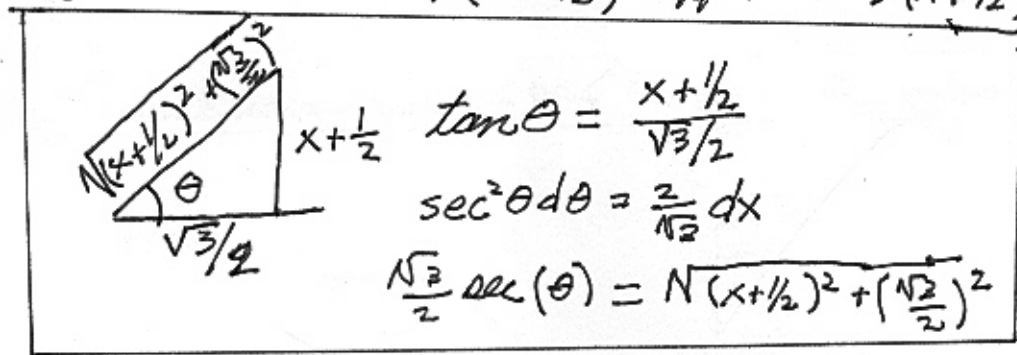 √(x+1/2)² + (√3/2)²
x+1/2
θ
√3/2
tan θ = (x+1/2)/(√3/2)
sec²θ dθ = 2/√3 dx
√3/2 sec(θ) = √(x+1/2)² + (√3/2)²